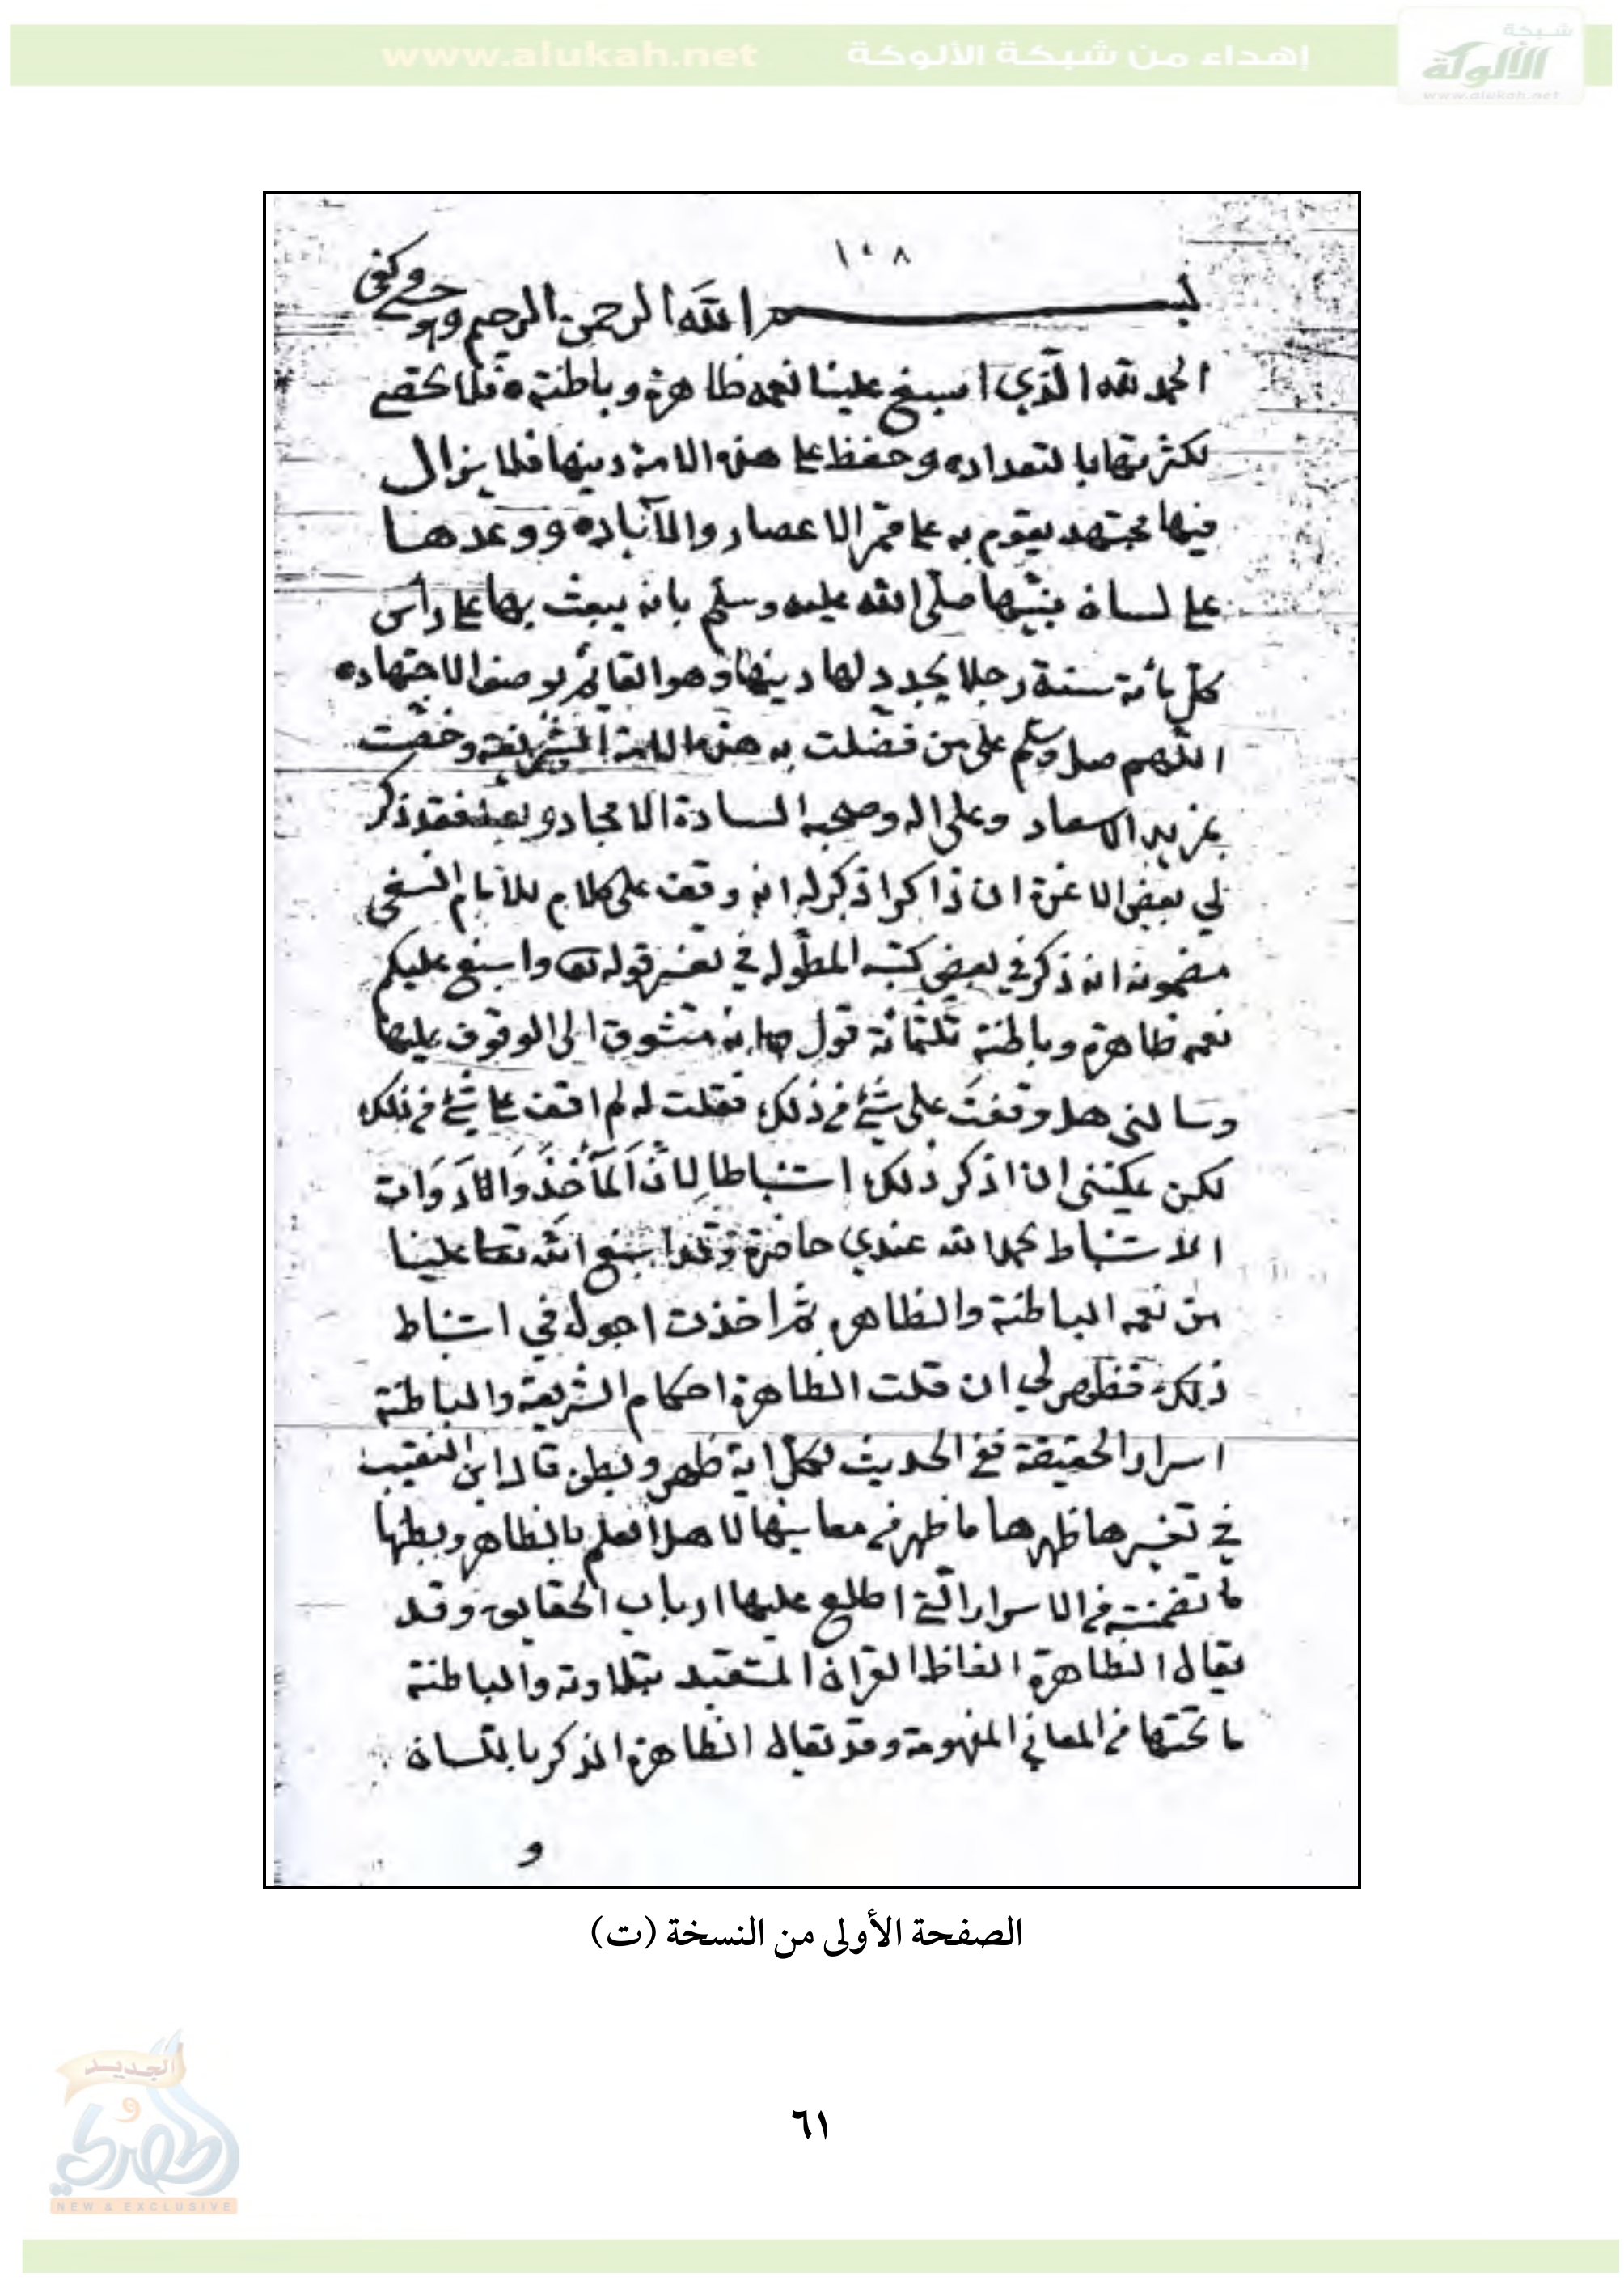 شبكة
الألوكة
www.alukah.net
إهداء من شبكة الألوكة www.alukah.net
١٠٨
بسم الله الرحمن الرحيم وكفى
الحمد لله الذي اسبغ علينا نعمه ظاهرة وباطنة فلا تحصى
لكثرتها بالتعداد وحفظ على هذه الامة دينها فلا يزال
فيها مجتهد يقوم به على ممر الاعصار والآباد ووعدها
على لسان نبيها صلى الله عليه وسلم بانه يبعث بها على رأس
كل مائة سنة رجلا يجدد لها دينها وهو القائم بوصف الاجتهاد
اللهم صل وسلم على من فضلت به هذه الامة الشريفة وخصت
بمزيد الاسعاد وعلى اله وصحبه السادة الامجاد وبعد فقد ذكر
لي بعض الاعزة ان ذاكرا ذكر له انه وقف على كلام للامام النسفي
مضمونه انه ذكر في بعض كتبه المطوله في تفسير قوله تعا واسبغ عليكم
نعمه ظاهرة وباطنة ثلثمائة قول وانه متشوق الى الوقوف عليها
وسالني هل وقفت على شئ من ذلك فقلت له لم اقف على شئ من ذلك
لكن يمكنني ان اذكر ذلك استنباطا لِانَّ اَلمَأخَذَ وَالادَوَات
الاستنباط بحمد الله عندي حاضرة وقد اسبغ الله تعا علينا
من نعمه الباطنة والظاهره ثم اخذت اجول في استنباط
ذلك فظهر لي ان قلت الظاهرة احكام الشريعة والباطنة
اسرار الحقيقة ففي الحديث لكل اية ظهر وبطن قال ابن النقيب
في تفسيرها ظهرها ما ظهر من معانيها لاهل العلم بالظاهر وبطنها
ما تضمنته من الاسرار التي اطلع عليها ارباب الحقايق وقد
يقال الظاهرة الفاظ القران المتعبد بتلاوته والباطنة
ما تحتها من المعاني المفهومة وقد يقال الظاهرة الذكر باللسان
و
الصفحة الأولى من النسخة (ت)
٦١
الجديد
و
المصري
NEW & EXCLUSIVE